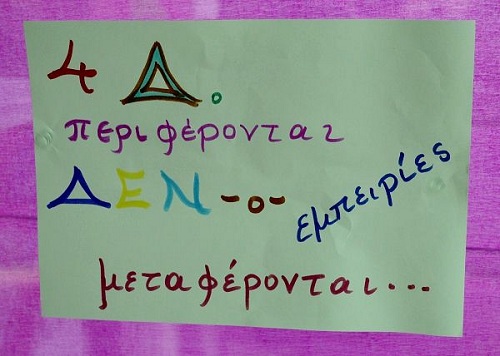 4 Δ.
περιφέρονται
ΔΕΝ -ο- εμπειρίες
μεταφέρονται...